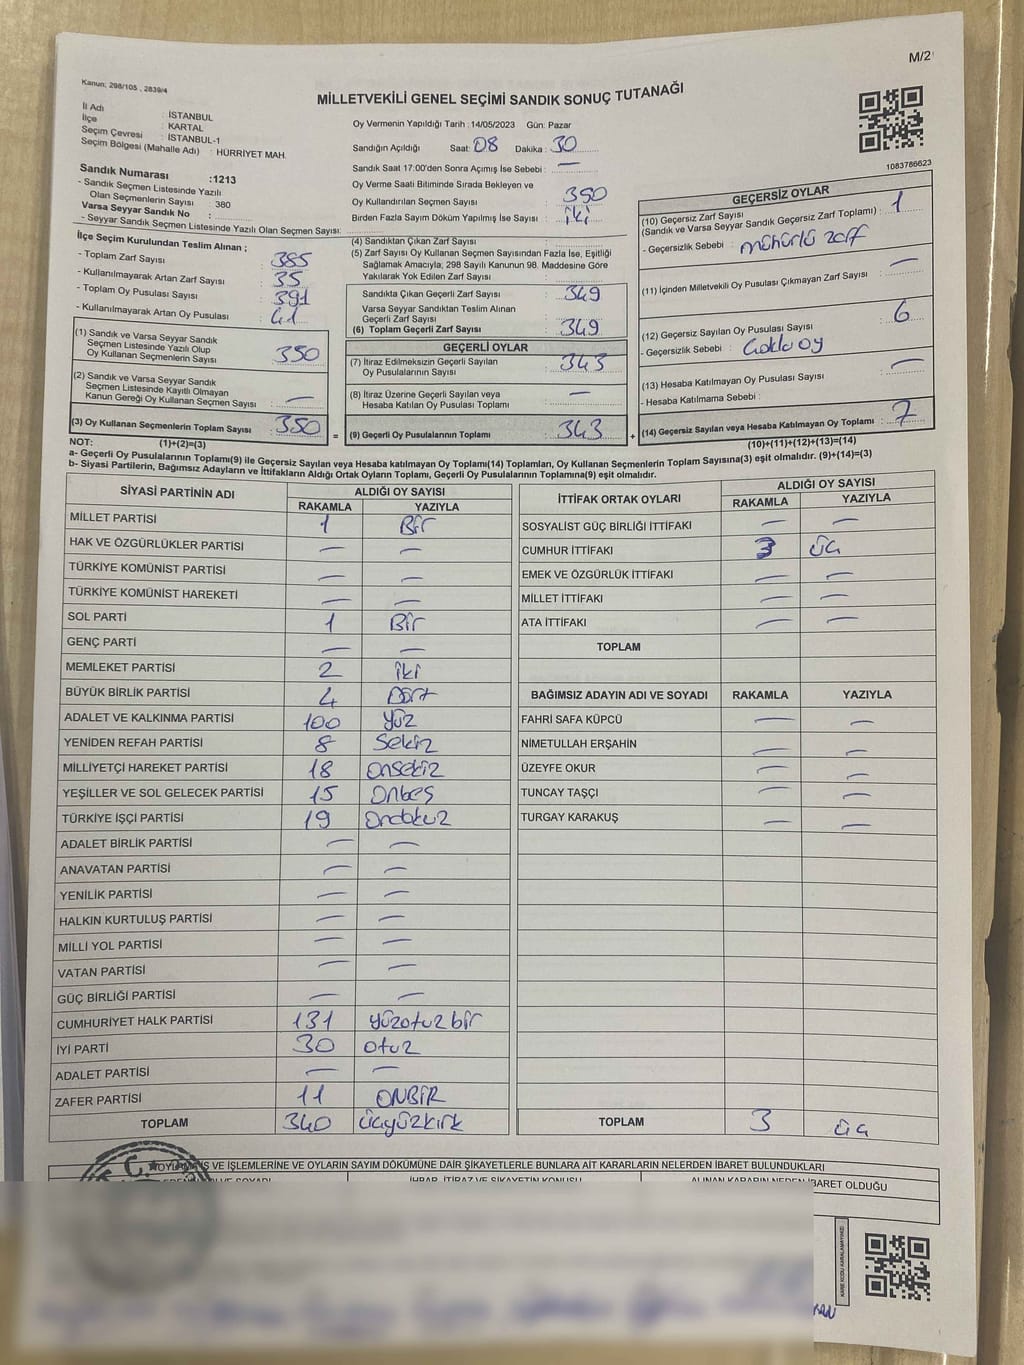 M/2
Kanun; 298/105 , 2839/4
MİLLETVEKİLİ GENEL SEÇİMİ SANDIK SONUÇ TUTANAĞI
İl Adı : İSTANBUL
İlçe : KARTAL
Seçim Çevresi : İSTANBUL-1
Seçim Bölgesi (Mahalle Adı) : HÜRRİYET MAH.
Sandık Numarası :1213
- Sandık Seçmen Listesinde Yazılı
Olan Seçmenlerin Sayısı 380
Varsa Seyyar Sandık No :
- Seyyar Sandık Seçmen Listesinde Yazılı Olan Seçmen Sayısı:
Oy Vermenin Yapıldığı Tarih :14/05/2023 Gün: Pazar
Sandığın Açıldığı Saat: 08 Dakika: 30
Sandık Saat 17:00'den Sonra Açılmış İse Sebebi : —
Oy Verme Saati Bitiminde Sırada Bekleyen ve
Oy Kullandırılan Seçmen Sayısı : 350
Birden Fazla Sayım Döküm Yapılmış İse Sayısı : iki
1083786623
İlçe Seçim Kurulundan Teslim Alınan ;
- Toplam Zarf Sayısı : 385
- Kullanılmayarak Artan Zarf Sayısı : 35
- Toplam Oy Pusulası Sayısı : 391
- Kullanılmayarak Artan Oy Pusulası : 41
(1) Sandık ve Varsa Seyyar Sandık
Seçmen Listesinde Yazılı Olup
Oy Kullanan Seçmenlerin Sayısı : 350
(2) Sandık ve Varsa Seyyar Sandık
Seçmen Listesinde Kayıtlı Olmayan
Kanun Gereği Oy Kullanan Seçmen Sayısı : —
(3) Oy Kullanan Seçmenlerin Toplam Sayısı : 350
(4) Sandıktan Çıkan Zarf Sayısı :
(5) Zarf Sayısı Oy Kullanan Seçmen Sayısından Fazla İse, Eşitliği
Sağlamak Amacıyla; 298 Sayılı Kanunun 98. Maddesine Göre
Yakılarak Yok Edilen Zarf Sayısı :
Sandıkta Çıkan Geçerli Zarf Sayısı : 349
Varsa Seyyar Sandıktan Teslim Alınan
Geçerli Zarf Sayısı
(6) Toplam Geçerli Zarf Sayısı : 349
GEÇERLİ OYLAR
(7) İtiraz Edilmeksizin Geçerli Sayılan
Oy Pusulalarının Sayısı : 343
(8) İtiraz Üzerine Geçerli Sayılan veya
Hesaba Katılan Oy Pusulası Toplamı : —
= (9) Geçerli Oy Pusulalarının Toplamı : 343
GEÇERSİZ OYLAR
(10) Geçersiz Zarf Sayısı
(Sandık ve Varsa Seyyar Sandık Geçersiz Zarf Toplamı) : 1
- Geçersizlik Sebebi : mühürlü zarf
(11) İçinden Milletvekili Oy Pusulası Çıkmayan Zarf Sayısı : —
(12) Geçersiz Sayılan Oy Pusulası Sayısı : 6
- Geçersizlik Sebebi : Çoklu oy
(13) Hesaba Katılmayan Oy Pusulası Sayısı : —
- Hesaba Katılmama Sebebi :
+ (14) Geçersiz Sayılan veya Hesaba Katılmayan Oy Toplamı : 7
NOT: (1)+(2)=(3)
(10)+(11)+(12)+(13)=(14)
a- Geçerli Oy Pusulalarının Toplamı(9) ile Geçersiz Sayılan veya Hesaba katılmayan Oy Toplamı(14) Toplamları, Oy Kullanan Seçmenlerin Toplam Sayısına(3) eşit olmalıdır. (9)+(14)=(3)
b- Siyasi Partilerin, Bağımsız Adayların ve İttifakların Aldığı Ortak Oyların Toplamı, Geçerli Oy Pusulalarının Toplamına(9) eşit olmalıdır.
SİYASİ PARTİNİN ADI ALDIĞI OY SAYISI
RAKAMLA YAZIYLA
MİLLET PARTİSİ 1 Bir
HAK VE ÖZGÜRLÜKLER PARTİSİ — —
TÜRKİYE KOMÜNİST PARTİSİ — —
TÜRKİYE KOMÜNİST HAREKETİ — —
SOL PARTİ 1 Bir
GENÇ PARTİ — —
MEMLEKET PARTİSİ 2 iki
BÜYÜK BİRLİK PARTİSİ 4 Dört
ADALET VE KALKINMA PARTİSİ 100 yüz
YENİDEN REFAH PARTİSİ 8 Sekiz
MİLLİYETÇİ HAREKET PARTİSİ 18 Onsekiz
YEŞİLLER VE SOL GELECEK PARTİSİ 15 Onbeş
TÜRKİYE İŞÇİ PARTİSİ 19 Ondokuz
ADALET BİRLİK PARTİSİ — —
ANAVATAN PARTİSİ — —
YENİLİK PARTİSİ — —
HALKIN KURTULUŞ PARTİSİ — —
MİLLİ YOL PARTİSİ — —
VATAN PARTİSİ — —
GÜÇ BİRLİĞİ PARTİSİ — —
CUMHURİYET HALK PARTİSİ 131 yüzotuzbir
İYİ PARTİ 30 otuz
ADALET PARTİSİ — —
ZAFER PARTİSİ 11 ONBİR
TOPLAM 340 üçyüzkırk
İTTİFAK ORTAK OYLARI ALDIĞI OY SAYISI
RAKAMLA YAZIYLA
SOSYALİST GÜÇ BİRLİĞİ İTTİFAKI — —
CUMHUR İTTİFAKI 3 üç
EMEK VE ÖZGÜRLÜK İTTİFAKI — —
MİLLET İTTİFAKI — —
ATA İTTİFAKI — —
TOPLAM
BAĞIMSIZ ADAYIN ADI VE SOYADI RAKAMLA YAZIYLA
FAHRİ SAFA KÜPCÜ — —
NİMETULLAH ERŞAHİN — —
ÜZEYFE OKUR — —
TUNCAY TAŞÇI — —
TURGAY KARAKUŞ — —
TOPLAM 3 üç
OYLAMA İŞ VE İŞLEMLERİNE VE OYLARIN SAYIM DÖKÜMÜNE DAİR ŞİKAYETLERLE BUNLARA AİT KARARLARIN NELERDEN İBARET BULUNDUKLARI
VE SOYADI İHBAR, İTİRAZ VE ŞİKAYETİN KONUSU ALINAN KARARIN NEDEN İBARET OLDUĞU
T.C.
KARE KODU KARALAMAYINIZ!